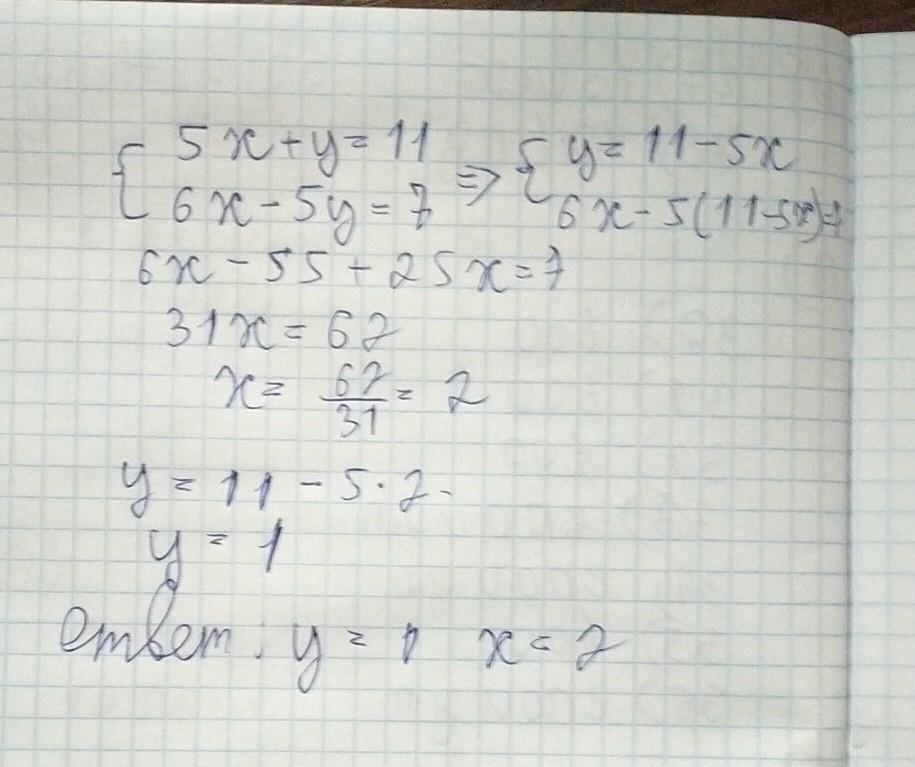 { 5x+y=11 ⇒ { y=11-5x
{ 6x-5y=7 6x-5(11-5x)=7
6x-55+25x=7
31x=62
x= 62/31 = 2
y=11-5·2
y=1
Ответ: y=1 x=2